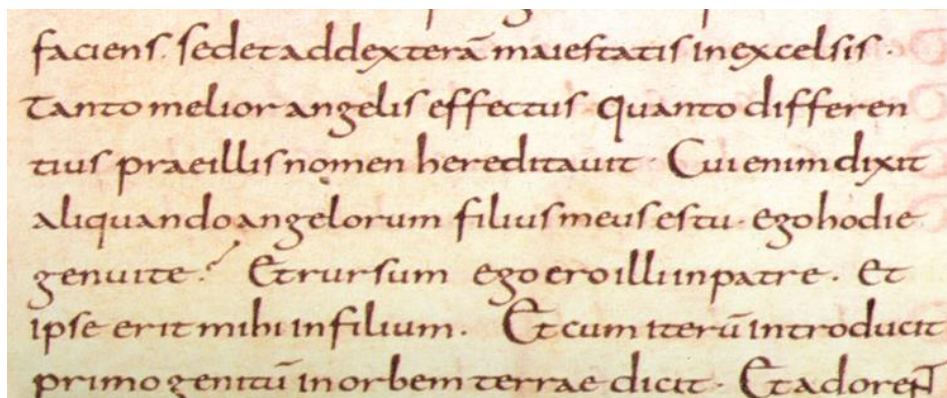 faciens. sedet ad dexterā maiestatis in excelsis.
Tanto melior angelis effectus quanto differen
tius prae illis nomen hereditauit. Cui enim dixit
aliquando angelorum filius meus es tu. ego hodie
genui te? Et rursum ego ero illi in patre. Et
ipse erit mihi in filium. Et cum iterū introducit
primogenitū in orbem terrae dicit. Et ador